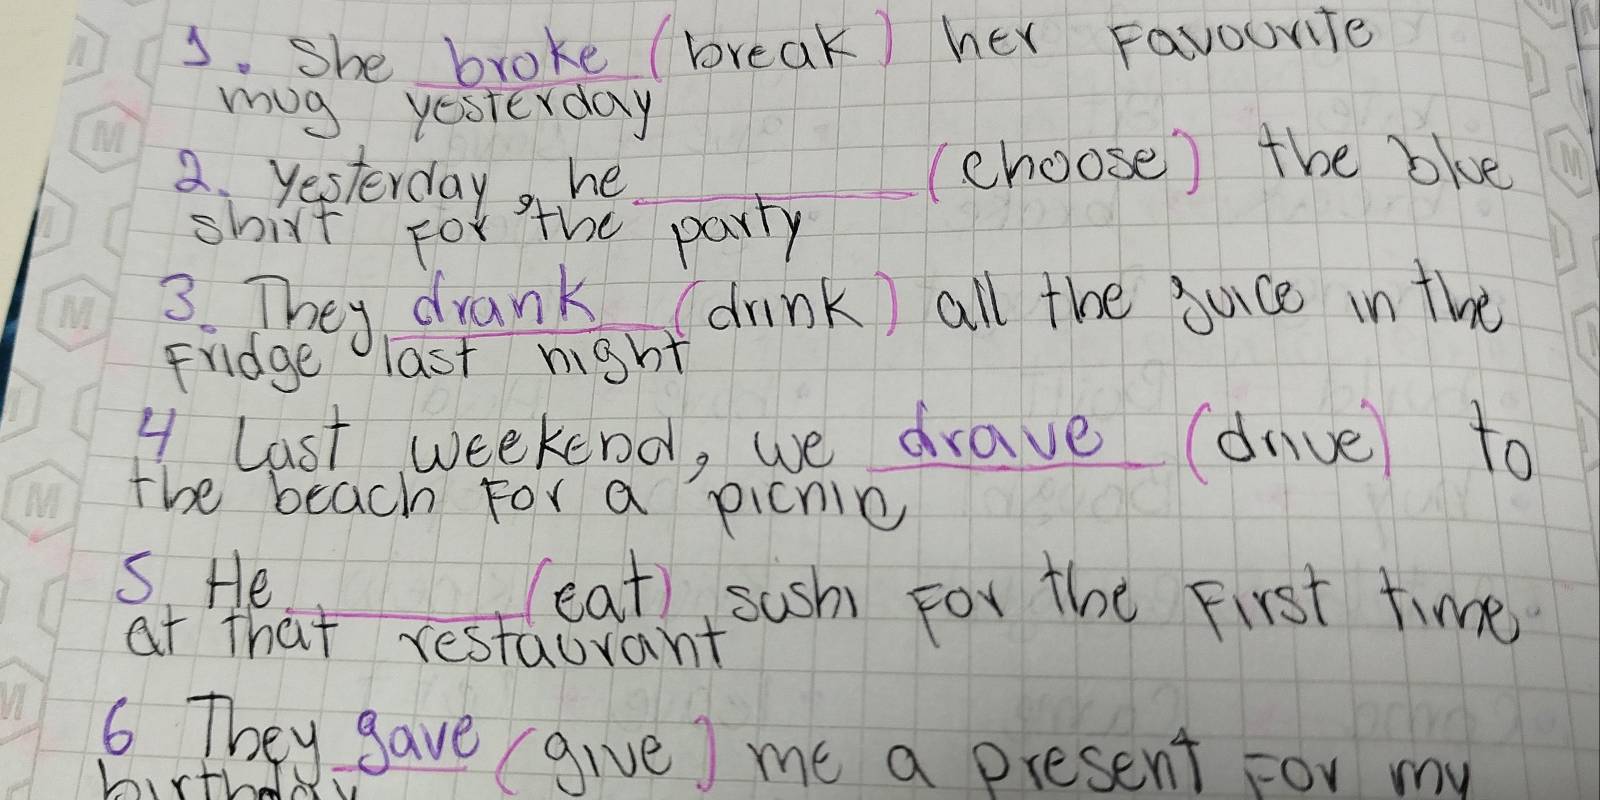 1. She broke (break) her Favourite
mug yesterday
2. Yesterday, he ________ (choose) the blue
shirt For the party
3. They drank (drink) all the juice in the
Fridge last night
4 Last weekend, we drave (drive) to
the beach For a picnic
5 He ________ (eat) sushi For the First time
at that restaurant
6 They gave (give) me a present For my
birthday